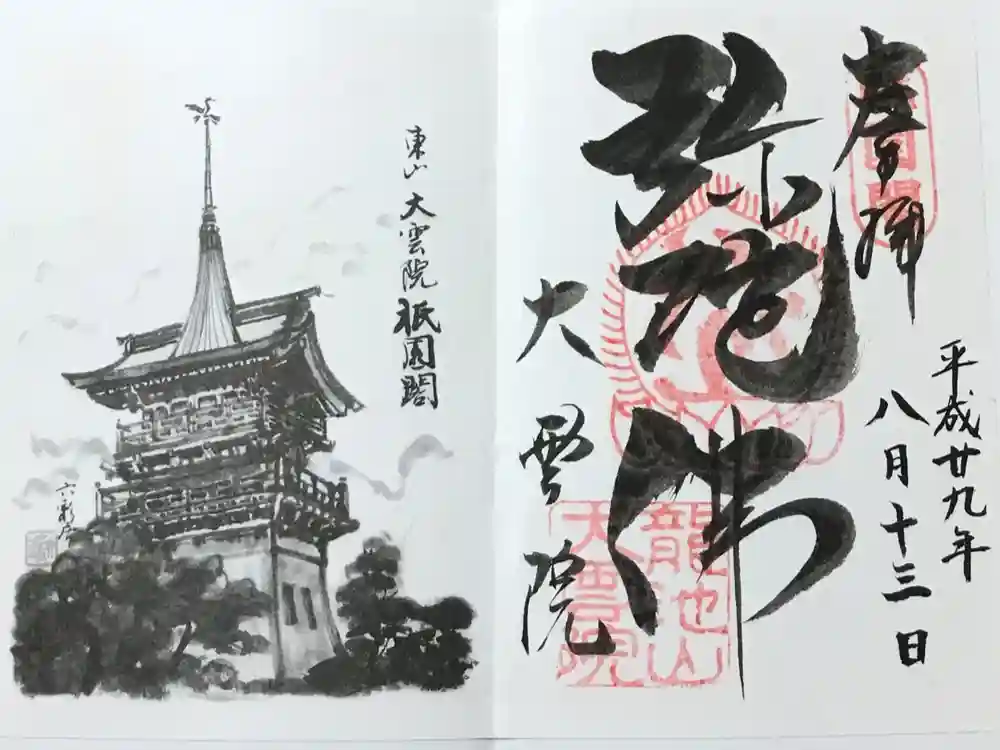 奉拝
平成廿九年
八月十三日
弥陀佛
大雲院
龍池山
大雲院
祇園閣
東山 大雲院 祇園閣